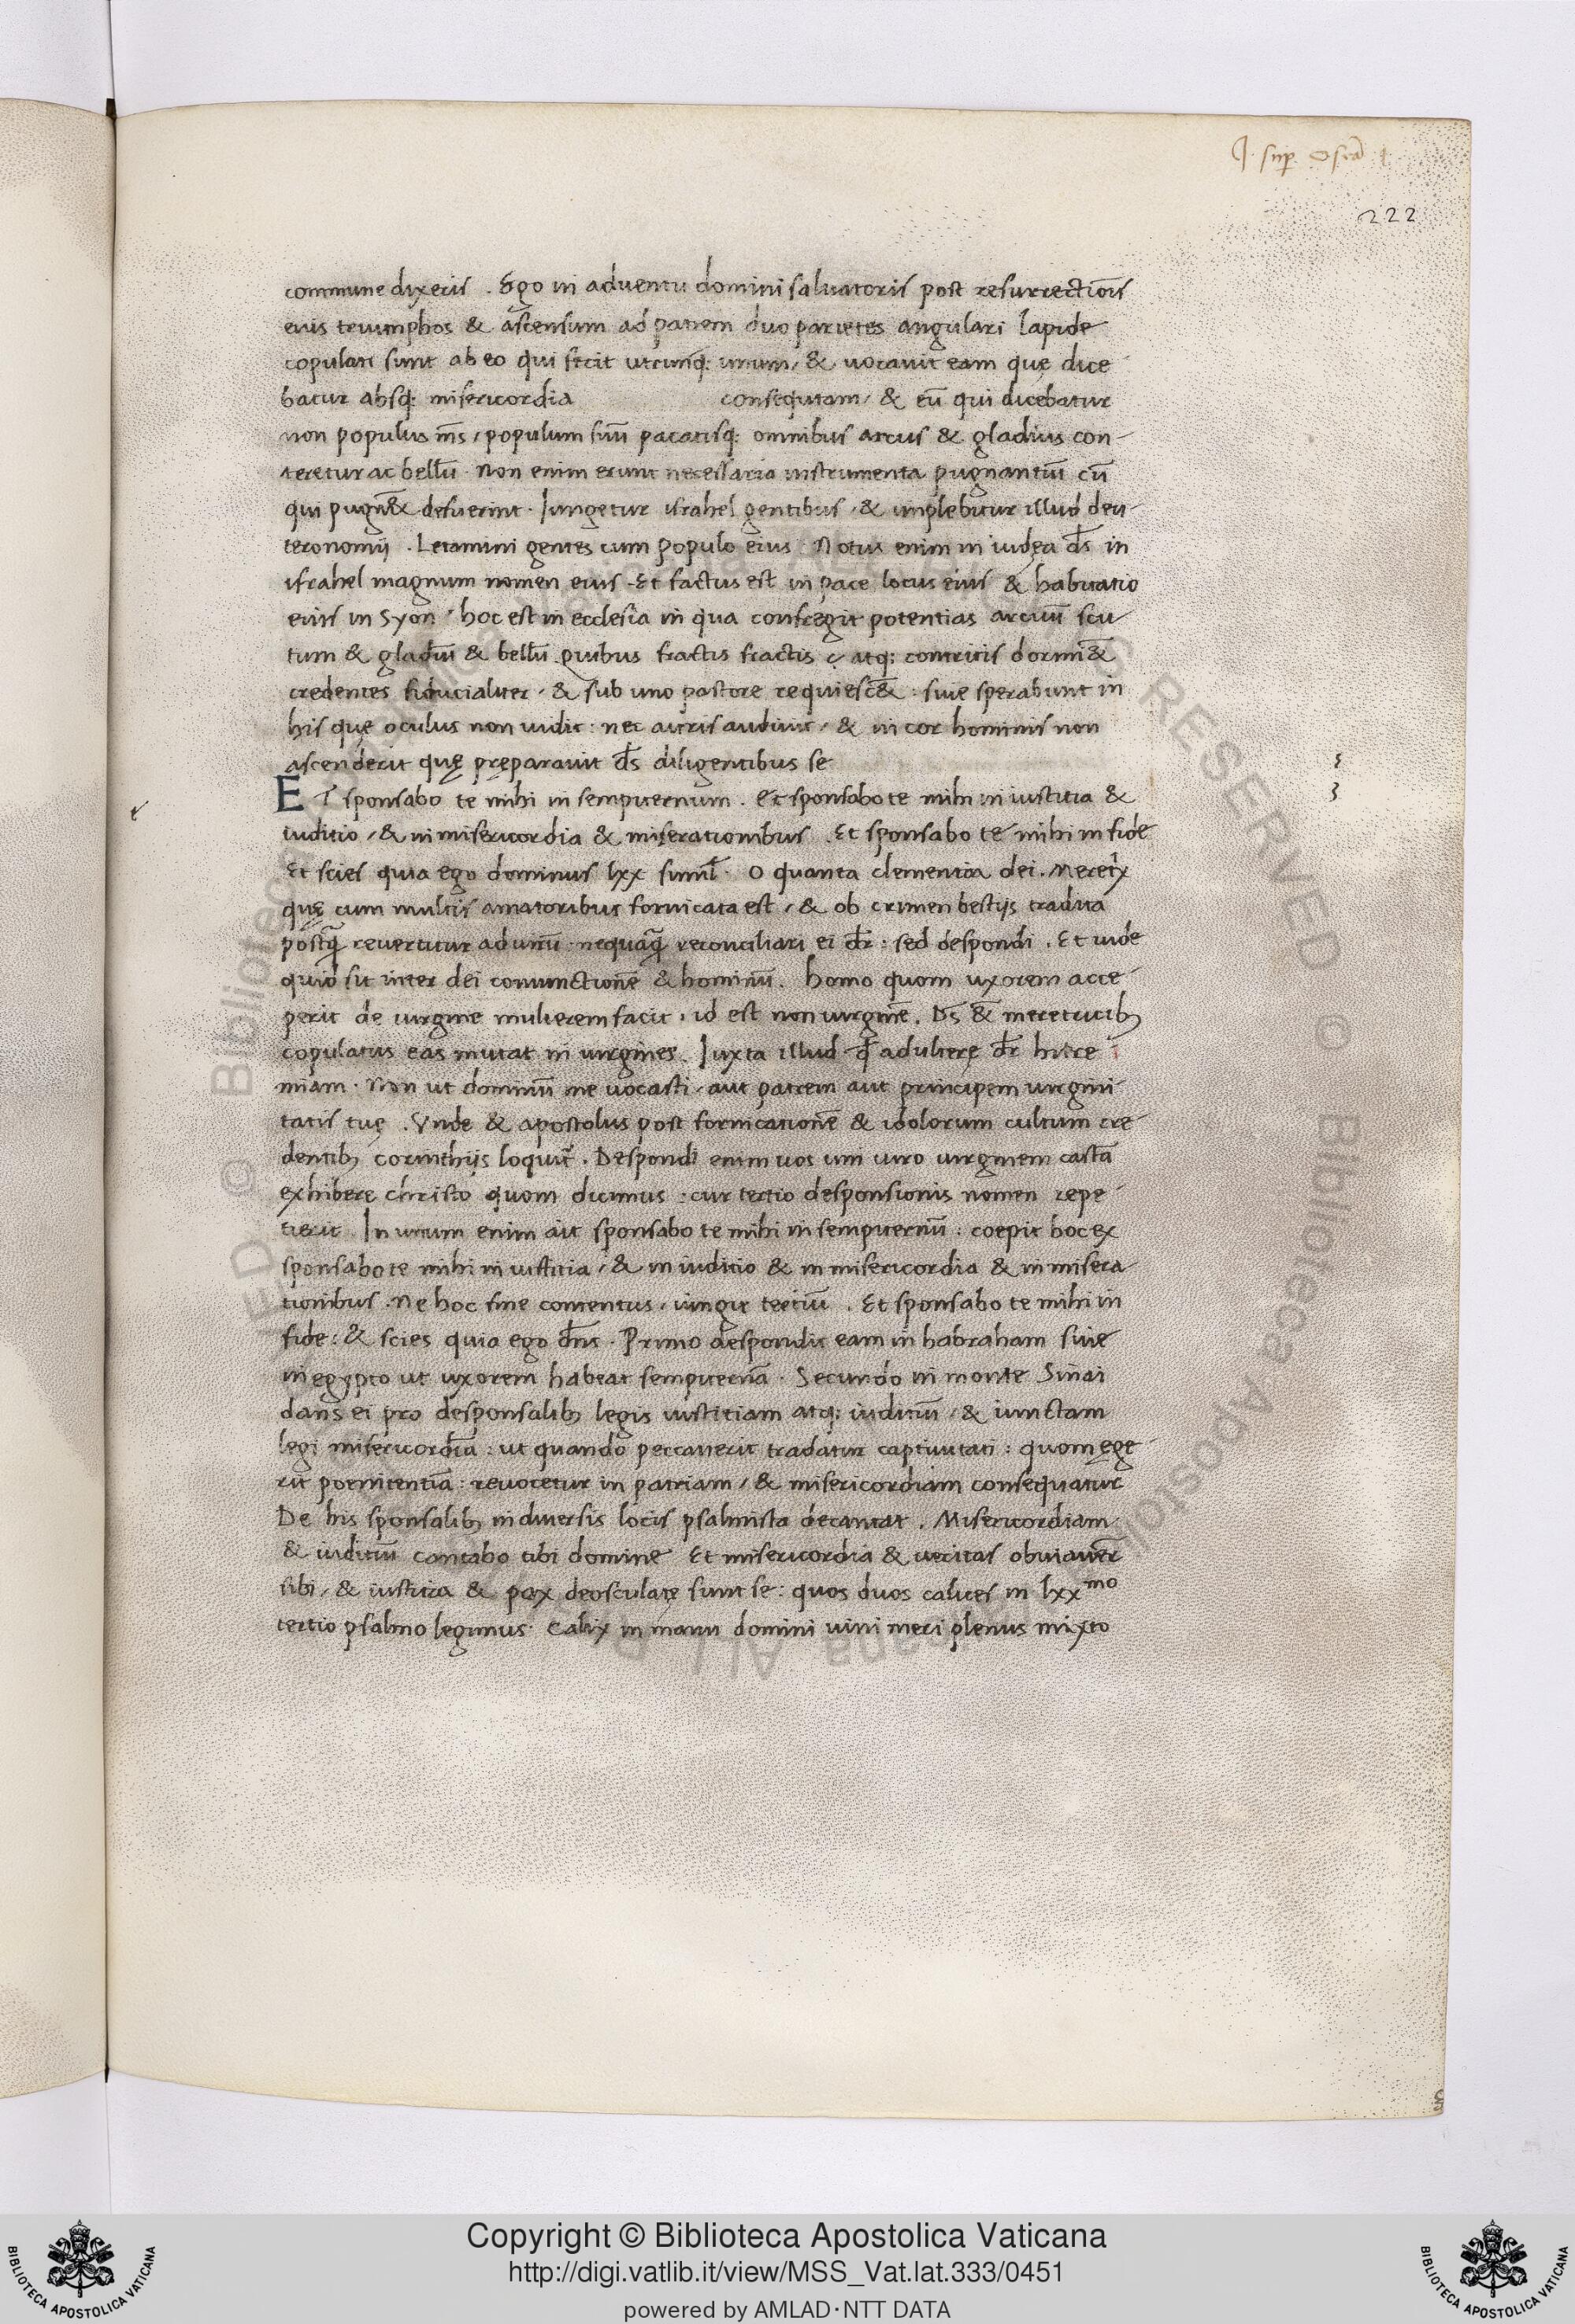 J. sup. Osea
222
commune dixeris . Ego in adventu domini salvatoris post resurrectiōis
eius triumphos & ascensum ad patrem duo parietes angulari lapide
copulati sunt ab eo qui fecit utrunq; unum, & uocauit eam quę dice
batur absq; misericordia consequtam, & eū qui dicebatur
non populus m̄s, populum suū pacatisq; omnibus arcus & gladius con-
teretur ac bellū. Non enim erunt necessaria instrumenta pugnantiū cū
qui pugn&̄ defuerint. Jungetur israhel gentibus, & implebitur illud deu-
teronomij . Letamini gentes cum populo eius. Notus enim in iudęa d̄s in
israhel magnum nomen eius. Et factus est in pace locus eius & habitatio
eius in Syon, hoc est in ecclesia in qua confregit potentias arcuū scu
tum & gladiū & bellū quibus fractis fractis atq; contritis dormi&̄
credentes fiducialiter, & sub uno pastore requiesc&̄ : siue sperabunt in
his quę oculus non uidit : nec auris audiuit, & in cor hominis non
ascenderit quę pręparauit d̄s diligentibus se
ET sponsabo te mihi in sempiternum . Et sponsabo te mihi in iustitia &
iuditio, & in misericordia & miserationibus . Et sponsabo te mihi in fide
Et scies quia ego dominus lxx simil̄r. O quanta clementia dei. Meret̄x
quę cum multis amatoribus fornicata est, & ob crimen bestijs tradita
postq̄ reuertitur ad uirū. nequaq̄ reconciliari ei dr̄ : sed despondi . Et uide
quid sit inter dei coniunctionē & hominū. Homo quom uxorem acce-
perit de uirgine mulierem facit, id est non uirginē. D̄s &̄ meretricib;
copulatus eas mutat in uirgines. Juxta illud q̄d adulterę dr̄ hiere
miam. Non ut dominū me uocasti, aut patrem aut principem uirgini-
tatis tuę . Vnde & apostolus post fornicationē & idolorum cultum cre
dentib; corinthijs loquit̄. Despondi enim uos uni uiro uirginem castā
exhibere christo quom dicimus : cur tertio desponsionis nomen repe-
tierit. In unum enim ait sponsabo te mihi in sempiternū : coepit hoc ex
sponsabo te mihi in iustitia, & in iuditio & in misericordia & in misera-
tionibus. Ne hoc fine contentus, iungit tertiū . Et sponsabo te mihi in
fide : & scies quia ego dn̄s. Primo despondit eam in habraham siue
in egypto ut uxorem habeat sempiternā. Secundo in monte Sinai
dans ei pro desponsalib; legis iustitiam atq; iuditiū, & iunctam
legi misericordiā : ut quando peccauerit tradatur captiuitati : quom ęge-
rit poenitentiā : reuocetur in patriam, & misericordiam consequatur
De his sponsalib; in diuersis locis psalmista decantat . Misericordiam
& iuditiū cantabo tibi domine Et misericordia & ueritas obuiauer̄t
sibi, & iustitia & pax deosculatę sunt se : quos duos calices in lxxmo
tertio psalmo legimus. Calix in manu domini uini meri plenus mixto
Copyright © Biblioteca Apostolica Vaticana
http://digi.vatlib.it/view/MSS_Vat.lat.333/0451
powered by AMLAD·NTT DATA
BIBLIOTECA APOSTOLICA VATICANA
BIBLIOTECA APOSTOLICA VATICANA